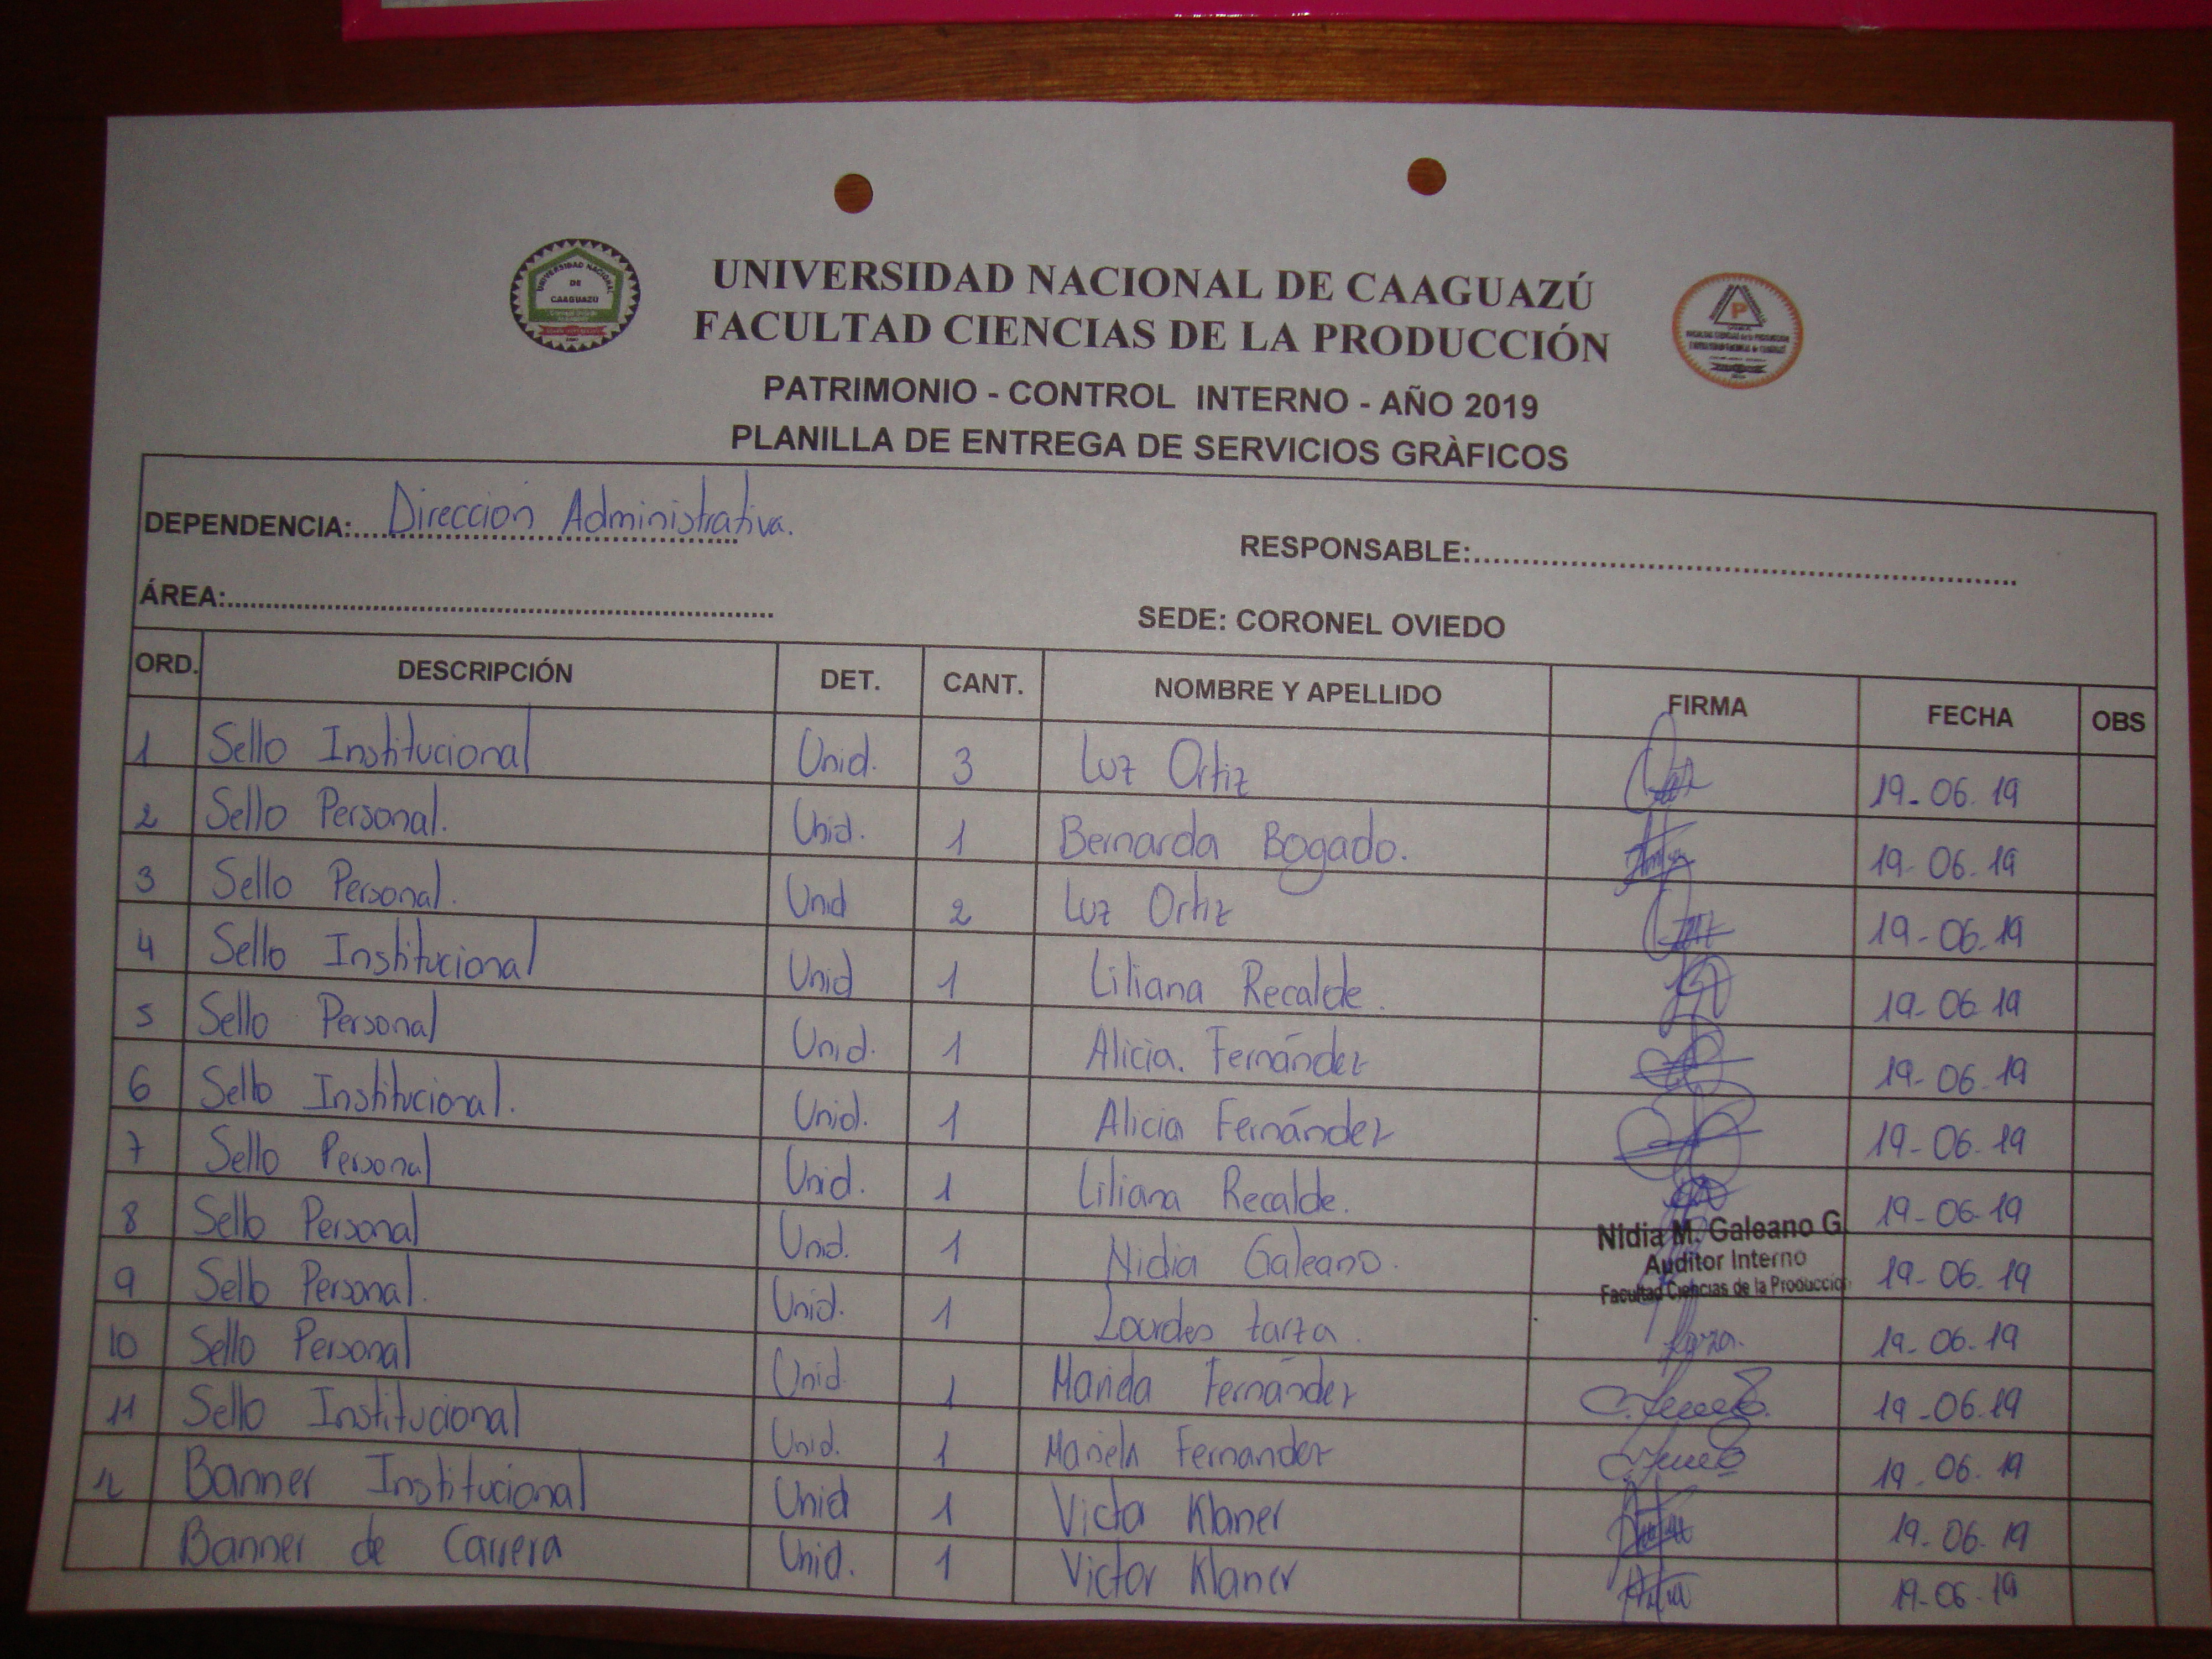 UNIVERSIDAD NACIONAL DE CAAGUAZÚ
UNIVERSIDAD NACIONAL
DE
CAAGUAZÚ
FACULTAD CIENCIAS DE LA PRODUCCIÓN
P
PATRIMONIO - CONTROL INTERNO - AÑO 2019
PLANILLA DE ENTREGA DE SERVICIOS GRÀFICOS
DEPENDENCIA: Dirección Administrativa.
RESPONSABLE:
ÁREA:
SEDE: CORONEL OVIEDO
ORD. DESCRIPCIÓN DET. CANT. NOMBRE Y APELLIDO FIRMA FECHA OBS
1 Sello Institucional Unid. 3 Luz Ortiz 19-06.19
2 Sello Personal. Unid. 1 Bernarda Bogado. 19-06-19
3 Sello Personal. Unid 2 Luz Ortiz 19-06-19
4 Sello Institucional Unid 1 Liliana Recalde. 19-06-19
5 Sello Personal Unid. 1 Alicia. Fernández 19-06-19
6 Sello Institucional. Unid. 1 Alicia Fernández 19-06-19
7 Sello Personal Unid. 1 Liliana Recalde. 19-06-19
8 Sello Personal Unid. 1 Nidia Galeano. 19-06.19
Nidia M. Galeano G.
Auditor Interno
Facultad Ciencias de la Produccion
9 Sello Personal. Unid. 1 Lourdes 19-06-19
10 Sello Personal Unid. 1 Fernández 19-06.19
11 Sello Institucional Unid. 1 Mariela Fernandez 19-06.19
12 Banner Institucional Unid 1 Victor Klaner 19-06.19
Banner de Carrera Unid. 1 Victor Klaner 19-06-19